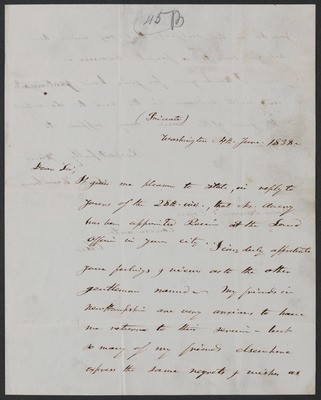 45
(Private)
Washington 4th June 1838.
Dear Sir
It gives me pleasure to state, in reply to
yours of the 28th ult., that Mr. Avery
has been appointed Receiver at the Land
Office in your city. I can duly appreciate
your feelings & views as to the other
gentleman named. My friends in
New Hampshire are very anxious to have
me return to their service — but
so many of my friends elsewhere
express the same regrets & wishes as